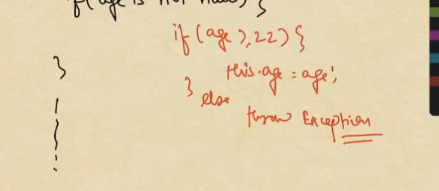 if(age is not null) {
if (age >, 22) {
this.age = age;
}
} else
throw Exception